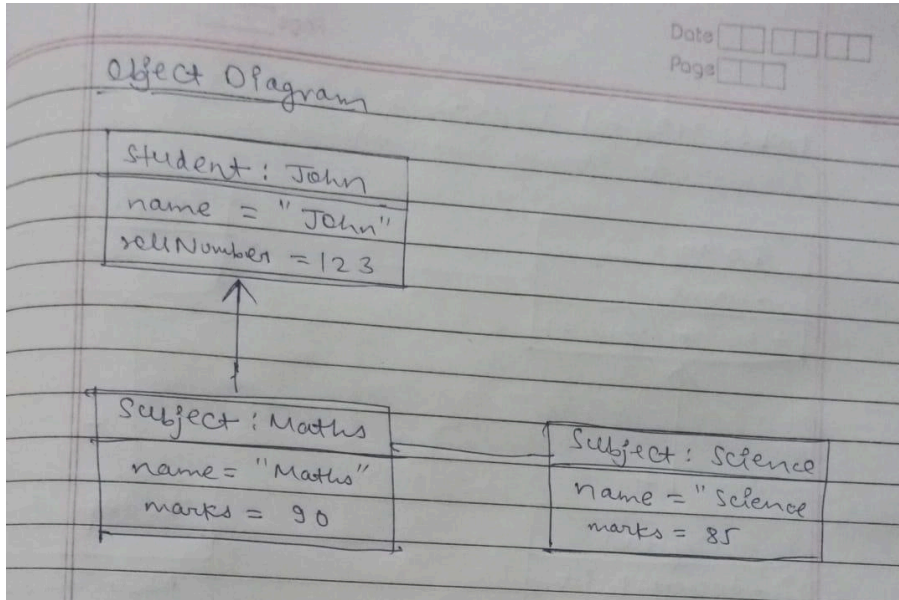 Date
Page
Object Diagram
Student : John
name = "John"
rollNumber = 123
Subject : Maths
name = "Maths"
marks = 90
Subject : Science
name = "Science
marks = 85